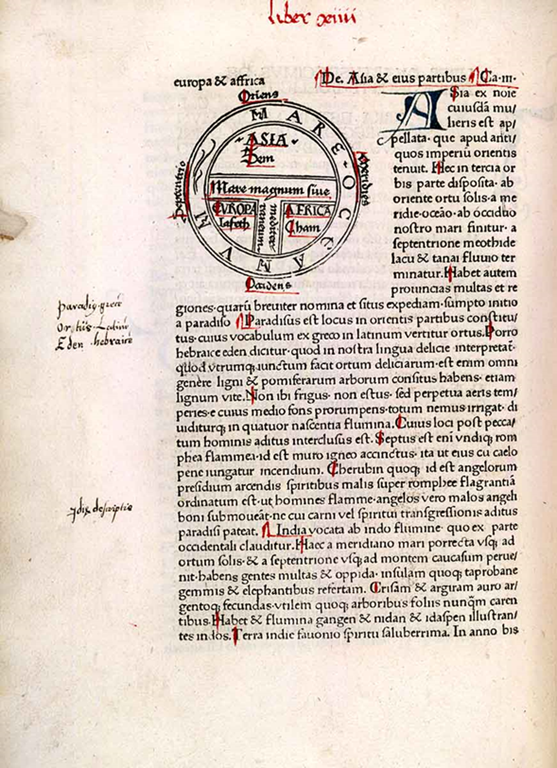 Liber xiiii
europa & affrica
De. Asia & eius partibus Ca.iii.
Oriens
MARE OCEANVM
ASIA
Sem
Mare magnum siue
mediterraneum
EVROPA
Iafeth
AFRICA
Cham
Septentrio
Meridies
Occidens
Asia ex noıe
cuiusdā mu/
lieris est ap/
pellata. que apud anti/
quos imperiū orientis
tenuit. Hec in tercia or
bis parte disposita. ab
oriente ortu solis. a me
ridie. oceāo. ab occiduo
nostro mari finitur. a
septentrione meothide
lacu & tanai fluuio ter
minatur. Habet autem
prouincias multas et re
giones. quarū breuiter nomina et situs expediam. sumpto initio
a paradiso Paradisus est locus in orientis partibus constitu/
tus. cuius vocabulum ex greco in latinum vertitur ortus. Porro
hebraice eden dicitur. quod in nostra lingua delicie interpretat̄.
quod vtrumq; iunctum facit ortum deliciarum. est enim omni
genere ligni & pomiferarum arborum consitus habens. etiam
lignum vite. Non ibi frigus. non estus. sed perpetua aeris tem/
peries. e cuius medio fons prorumpens. totum nemus irrigat. di
uiditurq; in quatuor nascentia flumina. Cuius loci post pecca/
tum hominis aditus interclusus est. Septus est enī vndiq; rom
phea flammea. id est muro igneo accinctus. ita ut eius cū caelo
pene iungatur incendium. Cherubin quoq; id est angelorum
presidium arcendis spiritibus malis super romphee flagrantiā
ordinatum est. ut homines flamme. angelos vero malos angeli
boni submoueāt. ne cui carni vel spiritui transgressionis aditus
paradisi pateat. India vocata ab indo flumine. quo ex parte
occidentali clauditur. Haec a meridiano mari porrecta vsq; ad
ortum solis. & a septentrione vsq; ad montem caucasum perue/
nit. habens gentes multas & oppida. insulam quoq; taprobane
gemmis & elephantibus refertam. Crisam & argiram auro ar/
gentoq; fecundas. vtilem quoq; arboribus foliis nunq̄m caren
tibus. Habet & flumina gangen & nidan & idaspen illustran/
tes indos. Terra indie fauonio spiritu saluberrima. In anno bis
paradiso grece
Ortus Latine
Eden hebraice
Indie descriptio